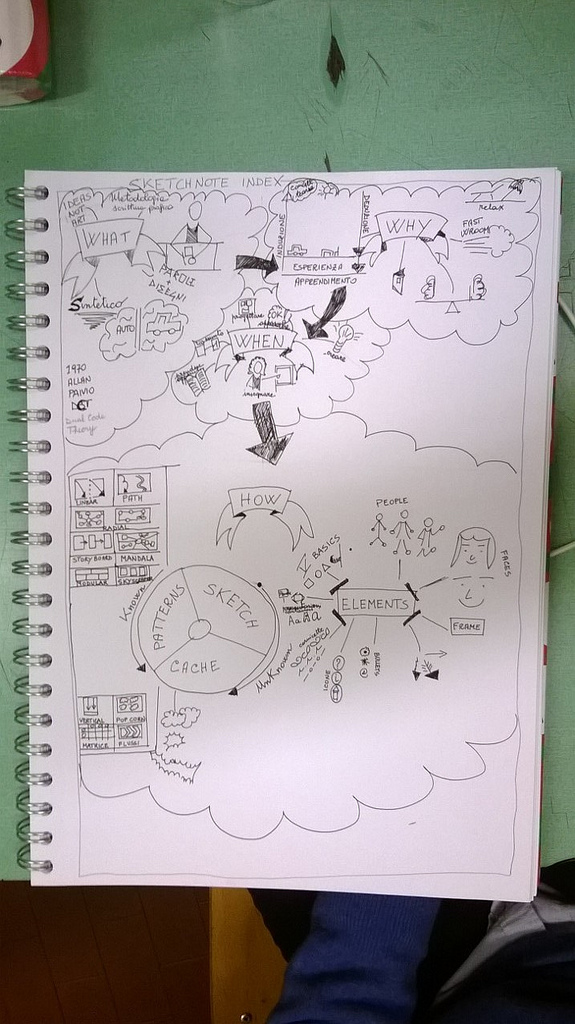 SKETCHNOTE INDEX
IDEAS
NOT
ART
Metodologia
scrittura grafica
WHAT
PAROLE
+
DISEGNI
Sintetico
AUTO
1970
ALLAN
PAIVIO
DCT
Dual Code
Theory
INDUZIONE
ESPERIENZA
APPRENDIMENTO
WHY
relax
FAST
VROOM
WHEN
OK!
creare
insegnare
HOW
LINEAR
PATH
RADIAL
STORYBOARD
MANDALA
MODULAR
SKYSCRAPER
Known
PATTERNS
SKETCH
CACHE
UnKnown
VERTICAL
POP CORN
MATRICE
FLUSSI
BASICS
PEOPLE
FACES
ELEMENTS
FRAME
AaBa
ICONE
BULLETS